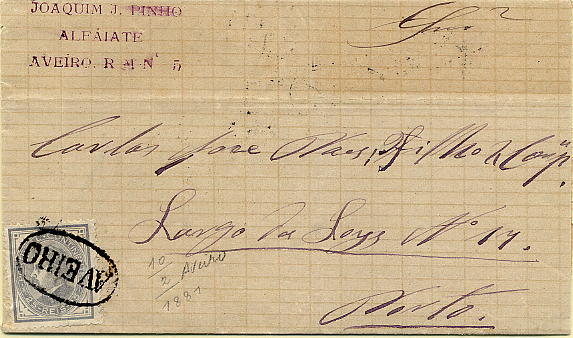 JOAQUIM J. PINHO
ALFAIATE
AVEIRO. R M Nº 5
Carlos Jose Filho & Comp.
Largo da Nº 17.
Porto.
AVEIRO
REIS
10
2 Aveiro
1881